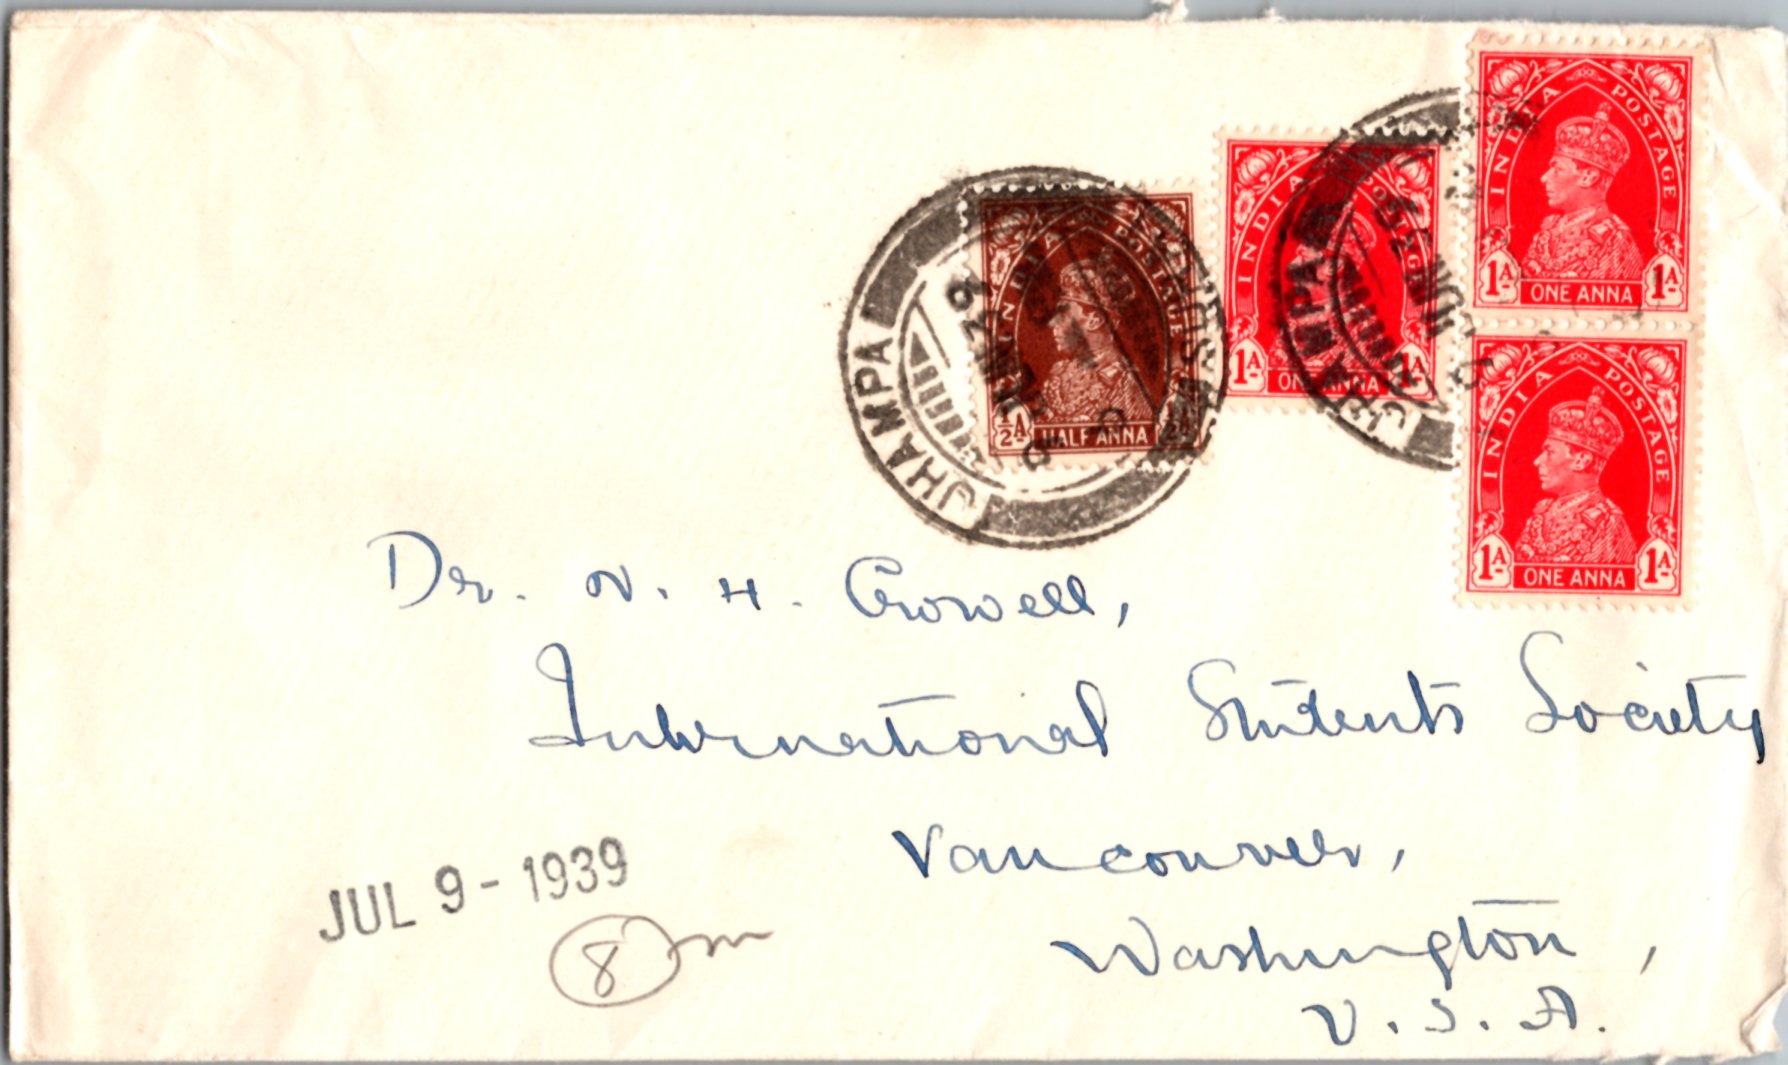 INDIA POSTAGE
1A 1A
ONE ANNA
INDIA POSTAGE
1A 1A
ONE ANNA
INDIA POSTAGE
1A 1A
ONE ANNA
INDIA POSTAGE
½A
HALF ANNA
JHAMPA
JUN 39
JHAMPA
JUN 39
Dr. N. H. Crowell,
International Students Society
Vancouver,
Washington,
U.S.A.
JUL 9 - 1939
8